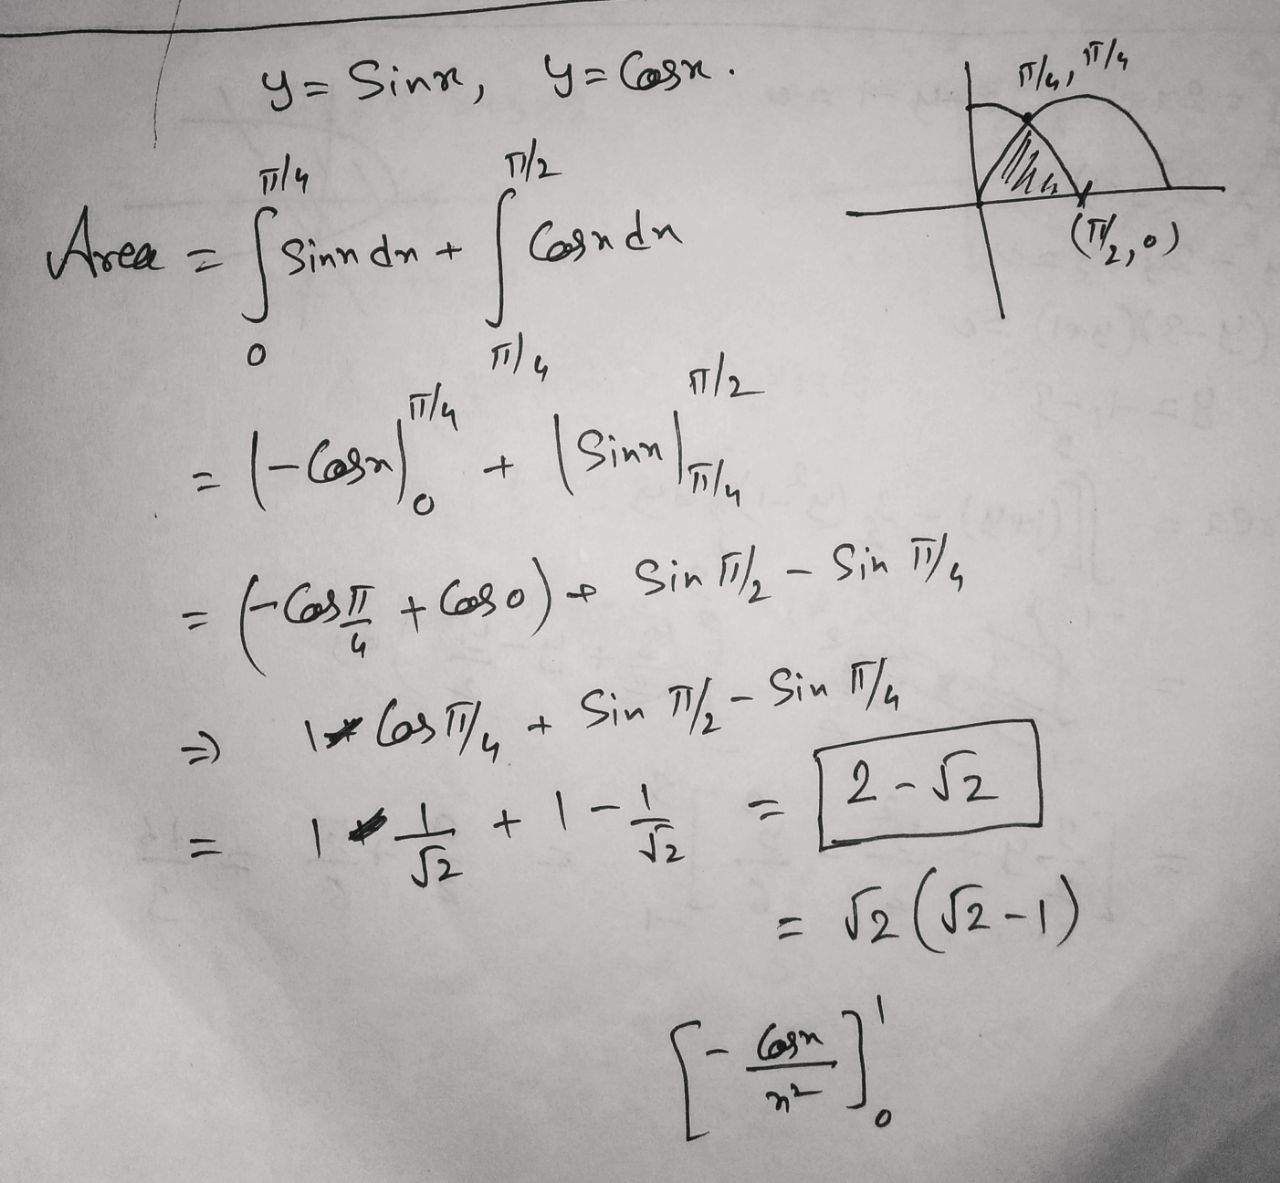 y = Sinx, y = Cosx.
π/4, π/4
(π/2, 0)
Area = ∫₀^{π/4} Sinx dx + ∫_{π/4}^{π/2} Cosx dx
= |-Cosx|₀^{π/4} + |Sinx|_{π/4}^{π/2}
= (-Cos π/4 + Cos 0) + Sin π/2 - Sin π/4
⇒ 1 - Cos π/4 + Sin π/2 - Sin π/4
= 1 - 1/√2 + 1 - 1/√2 = 2 - √2
= √2 (√2 - 1)
[- Cosx / x²]₀¹